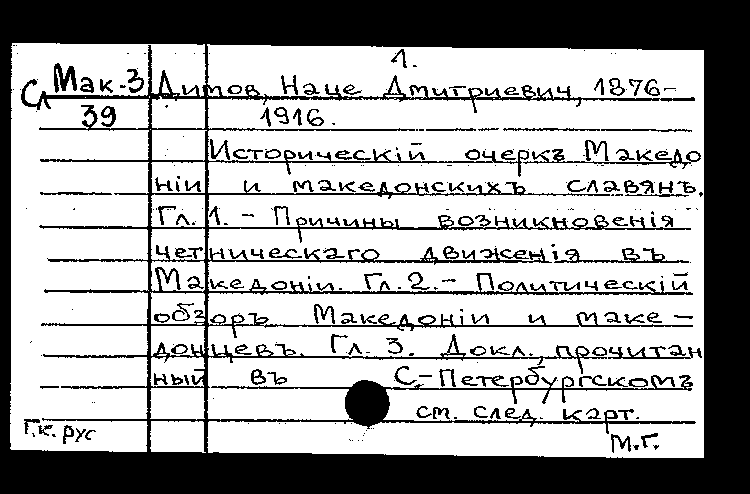 1.
Сл Мак-3 Димов, Наце Дмитриевич, 1876-
39 1916.
Историческій очеркъ Македо
ніи и македонскихъ славянъ.
Гл. 1. - Причины возникновенія
четническаго движенія въ
Македоніи. Гл. 2. - Политическій
обзоръ Македоніи и маке-
донцевъ. Гл. 3. Докл., прочитан
ный въ С.-Петербургскомъ
см. след. карт.
Г.к. рус М.Г.